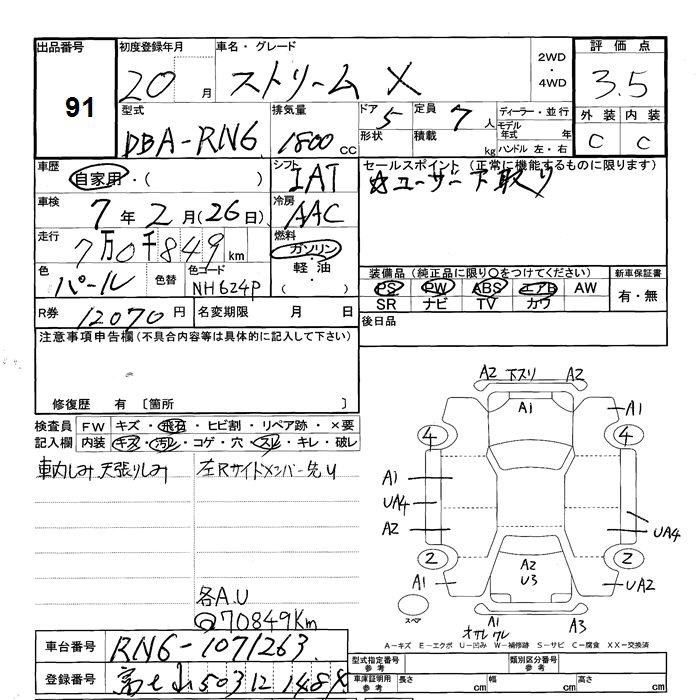 出品番号
91
初度登録年月
20 月
車名・グレード
ストリーム X
2WD
・
4WD
評価点
3.5
型式
DBA-RN6
排気量
1800 cc
ドア 5
形状
定員 7 人
積載 kg
ディーラー・並行
モデル
年式 年
ハンドル 左・右
外装 内装
C C
車歴
自家用・( )
シフト
IAT
セールスポイント (正常に機能するものに限ります)
☆ユーザー下取り
車検
7 年 2 月 (26 日)
冷房
AAC
走行
7万0千849 km
燃料
ガソリン
・
軽油
( )
色
パール
色替
色コード
NH624P
装備品 (純品に限り○をつけてください)
PS PW ABS エアB AW
SR ナビ TV カワ
新車保証書
有・無
R券 12070 円
名変期限 月 日
後日品
注意事項申告欄 (不具合内容等は具体的に記入して下さい)
修復歴 有 〔箇所 〕
検査員
記入欄
FW キズ・飛石・ヒビ割・リペア跡・×要
内装 キズ・汚レ・コゲ・穴・スレ・キレ・破レ
車内しみ 天張りしみ
左Rサイドメンバー先U
各A.U
70849Km
A2 下スリ A2
A1
A1
4 4
A1
UA4
A2
UA4
2 2
A2
U3
A1
UA2
スペア
A1
A3
A-キズ E-エクボ U-凹み W-補修跡 S-サビ C-腐食 XX-交換済
車台番号 RN6-1071263
型式指定番号
参考
類別区分番号
参考
登録番号
車庫証明用
参考
長さ cm 幅 cm 高さ cm